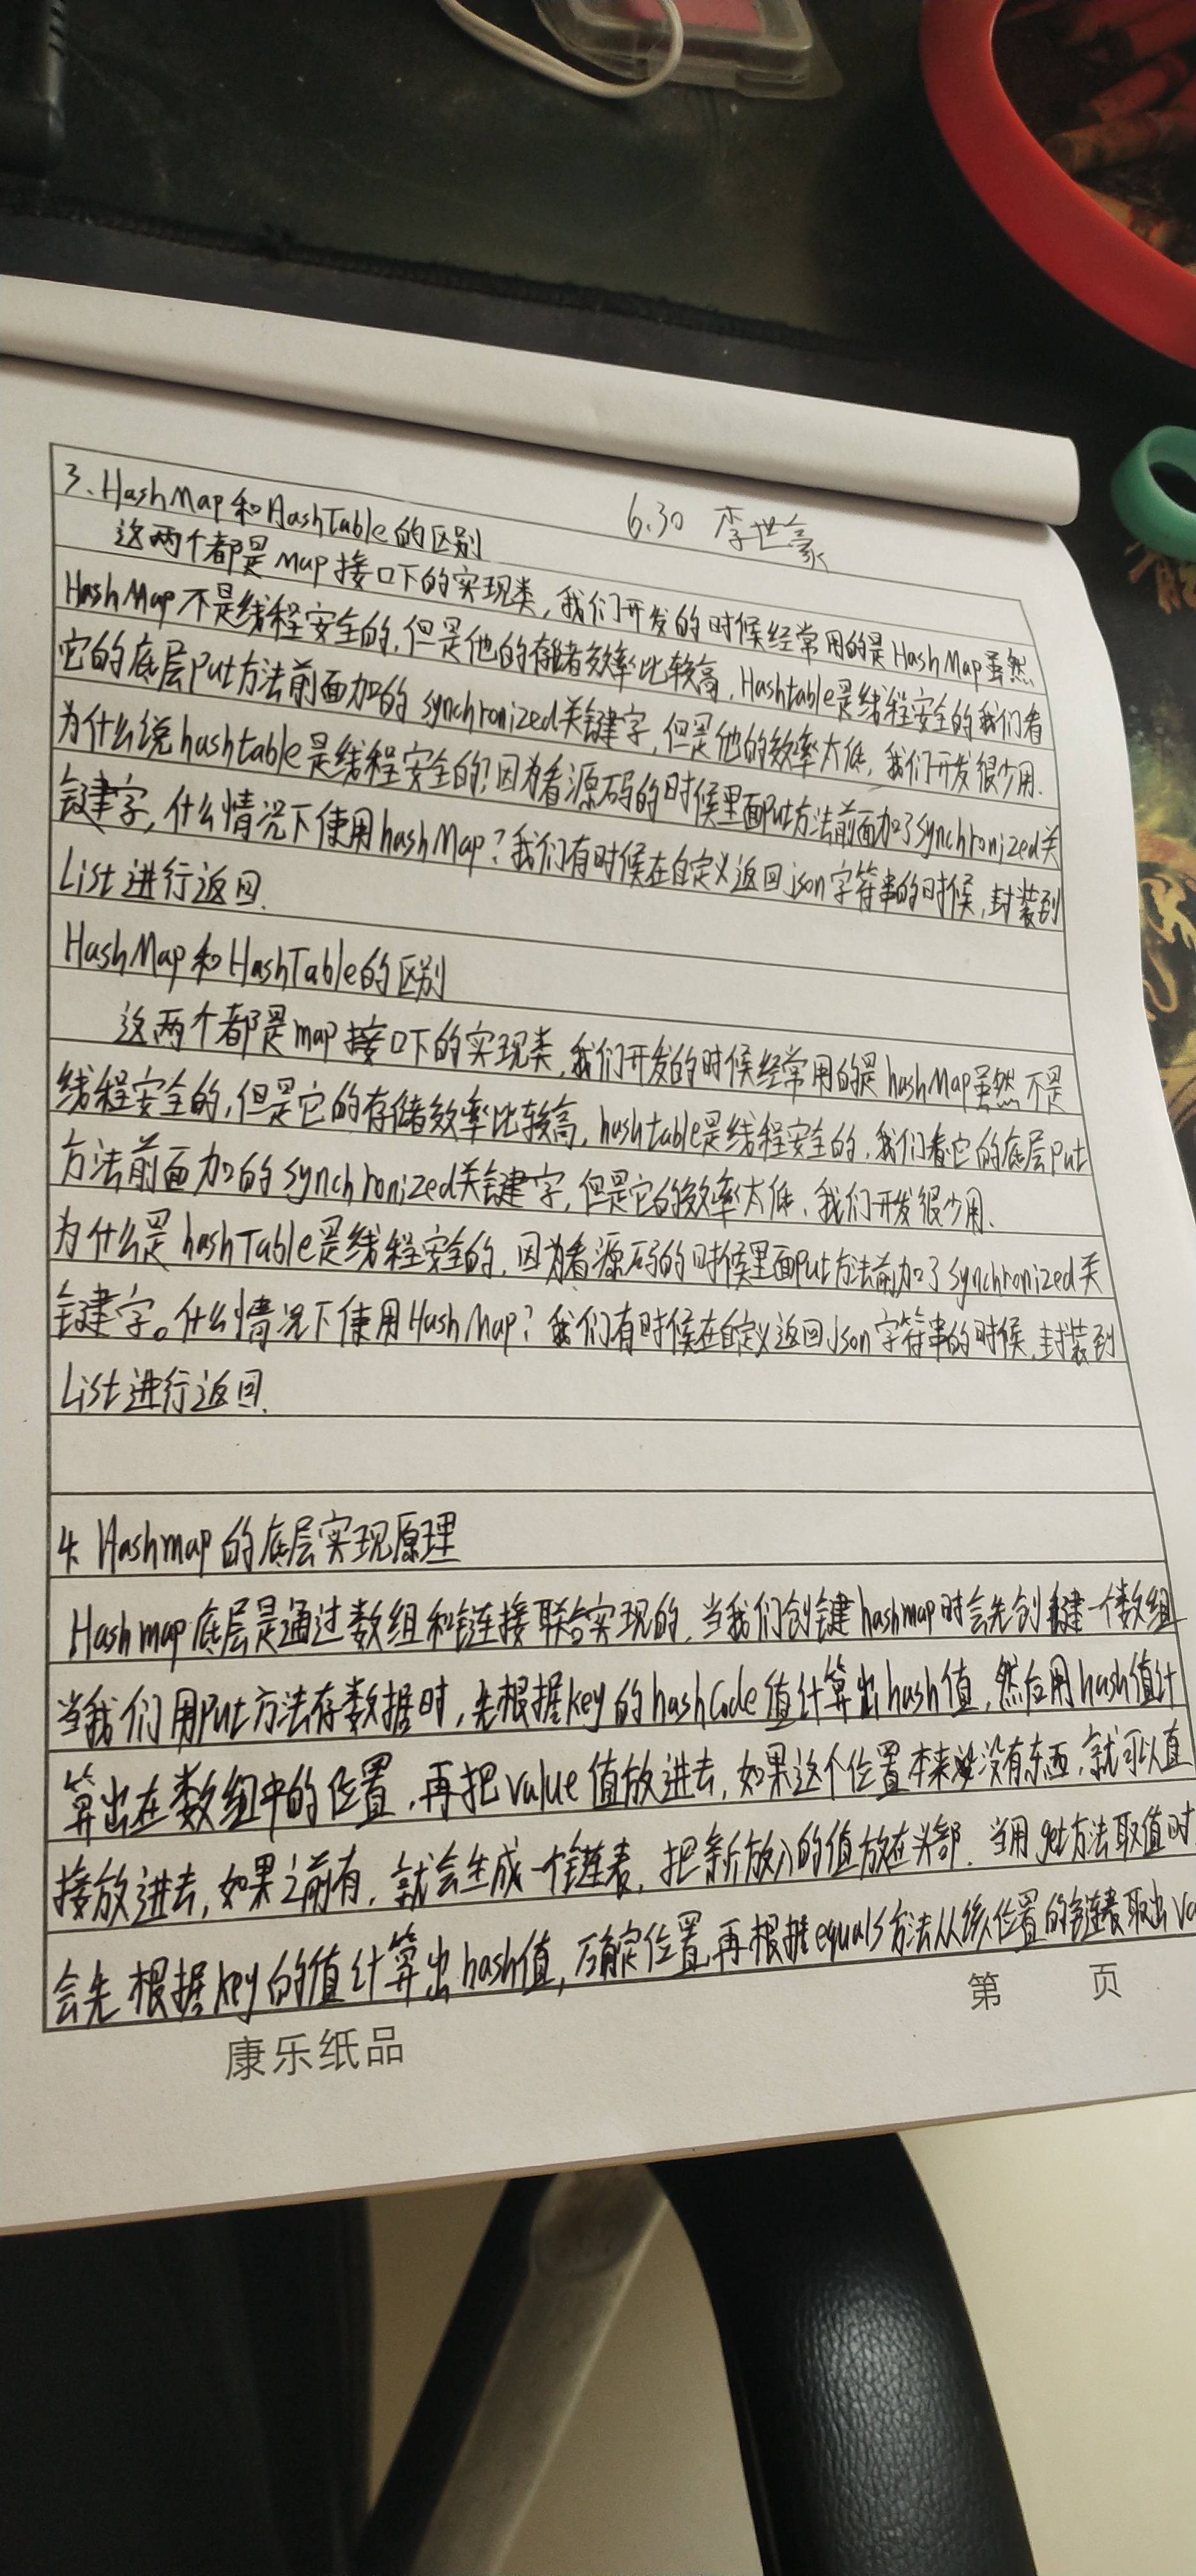 3、HashMap和HashTable的区别
6.30 李世豪
这两个都是map接口下的实现类,我们开发的时候经常用的是HashMap虽然
HashMap不是线程安全的,但是他的存储效率比较高,Hashtable是线程安全的我们看
它的底层Put方法前面加的synchronized关键字,但是他的效率太低,我们开发很少用.
为什么说hashtable是线程安全的?因为看源码的时候里面Put方法前面加了synchronized关
键字,什么情况下使用hashMap?我们有时候在自定义返回json字符串的时候,封装到
List进行返回.
HashMap和HashTable的区别
这两个都是map接口下的实现类,我们开发的时候经常用的是hashMap虽然不是
线程安全的,但是它的存储效率比较高,hashtable是线程安全的,我们看它的底层Put
方法前面加的synchronized关键字,但是它的效率太低、我们开发很少用、
为什么是hashTable是线程安全的,因为看源码的时候里面Put方法前加了synchronized关
键字。什么情况下使用HashMap?我们有时候在自定义返回Json字符串的时候,封装到
List进行返回.
4、Hashmap的底层实现原理
Hashmap底层是通过数组和链接联合实现的,当我们创键hashmap时会先创建一个数组
当我们用Put方法存数据时,先根据key的hashCode值计算出hash值,然后用hash值计
算出在数组中的位置,再把value值放进去,如果这个位置本来没有东西,就可以直
接放进去,如果之前有,就会生成一个链表,把新放入的值放在头部.当用get方法取值时
会先根据key的值计算出hash值,确定位置,再根据equals方法从该位置的链表取出va
第 页
康乐纸品